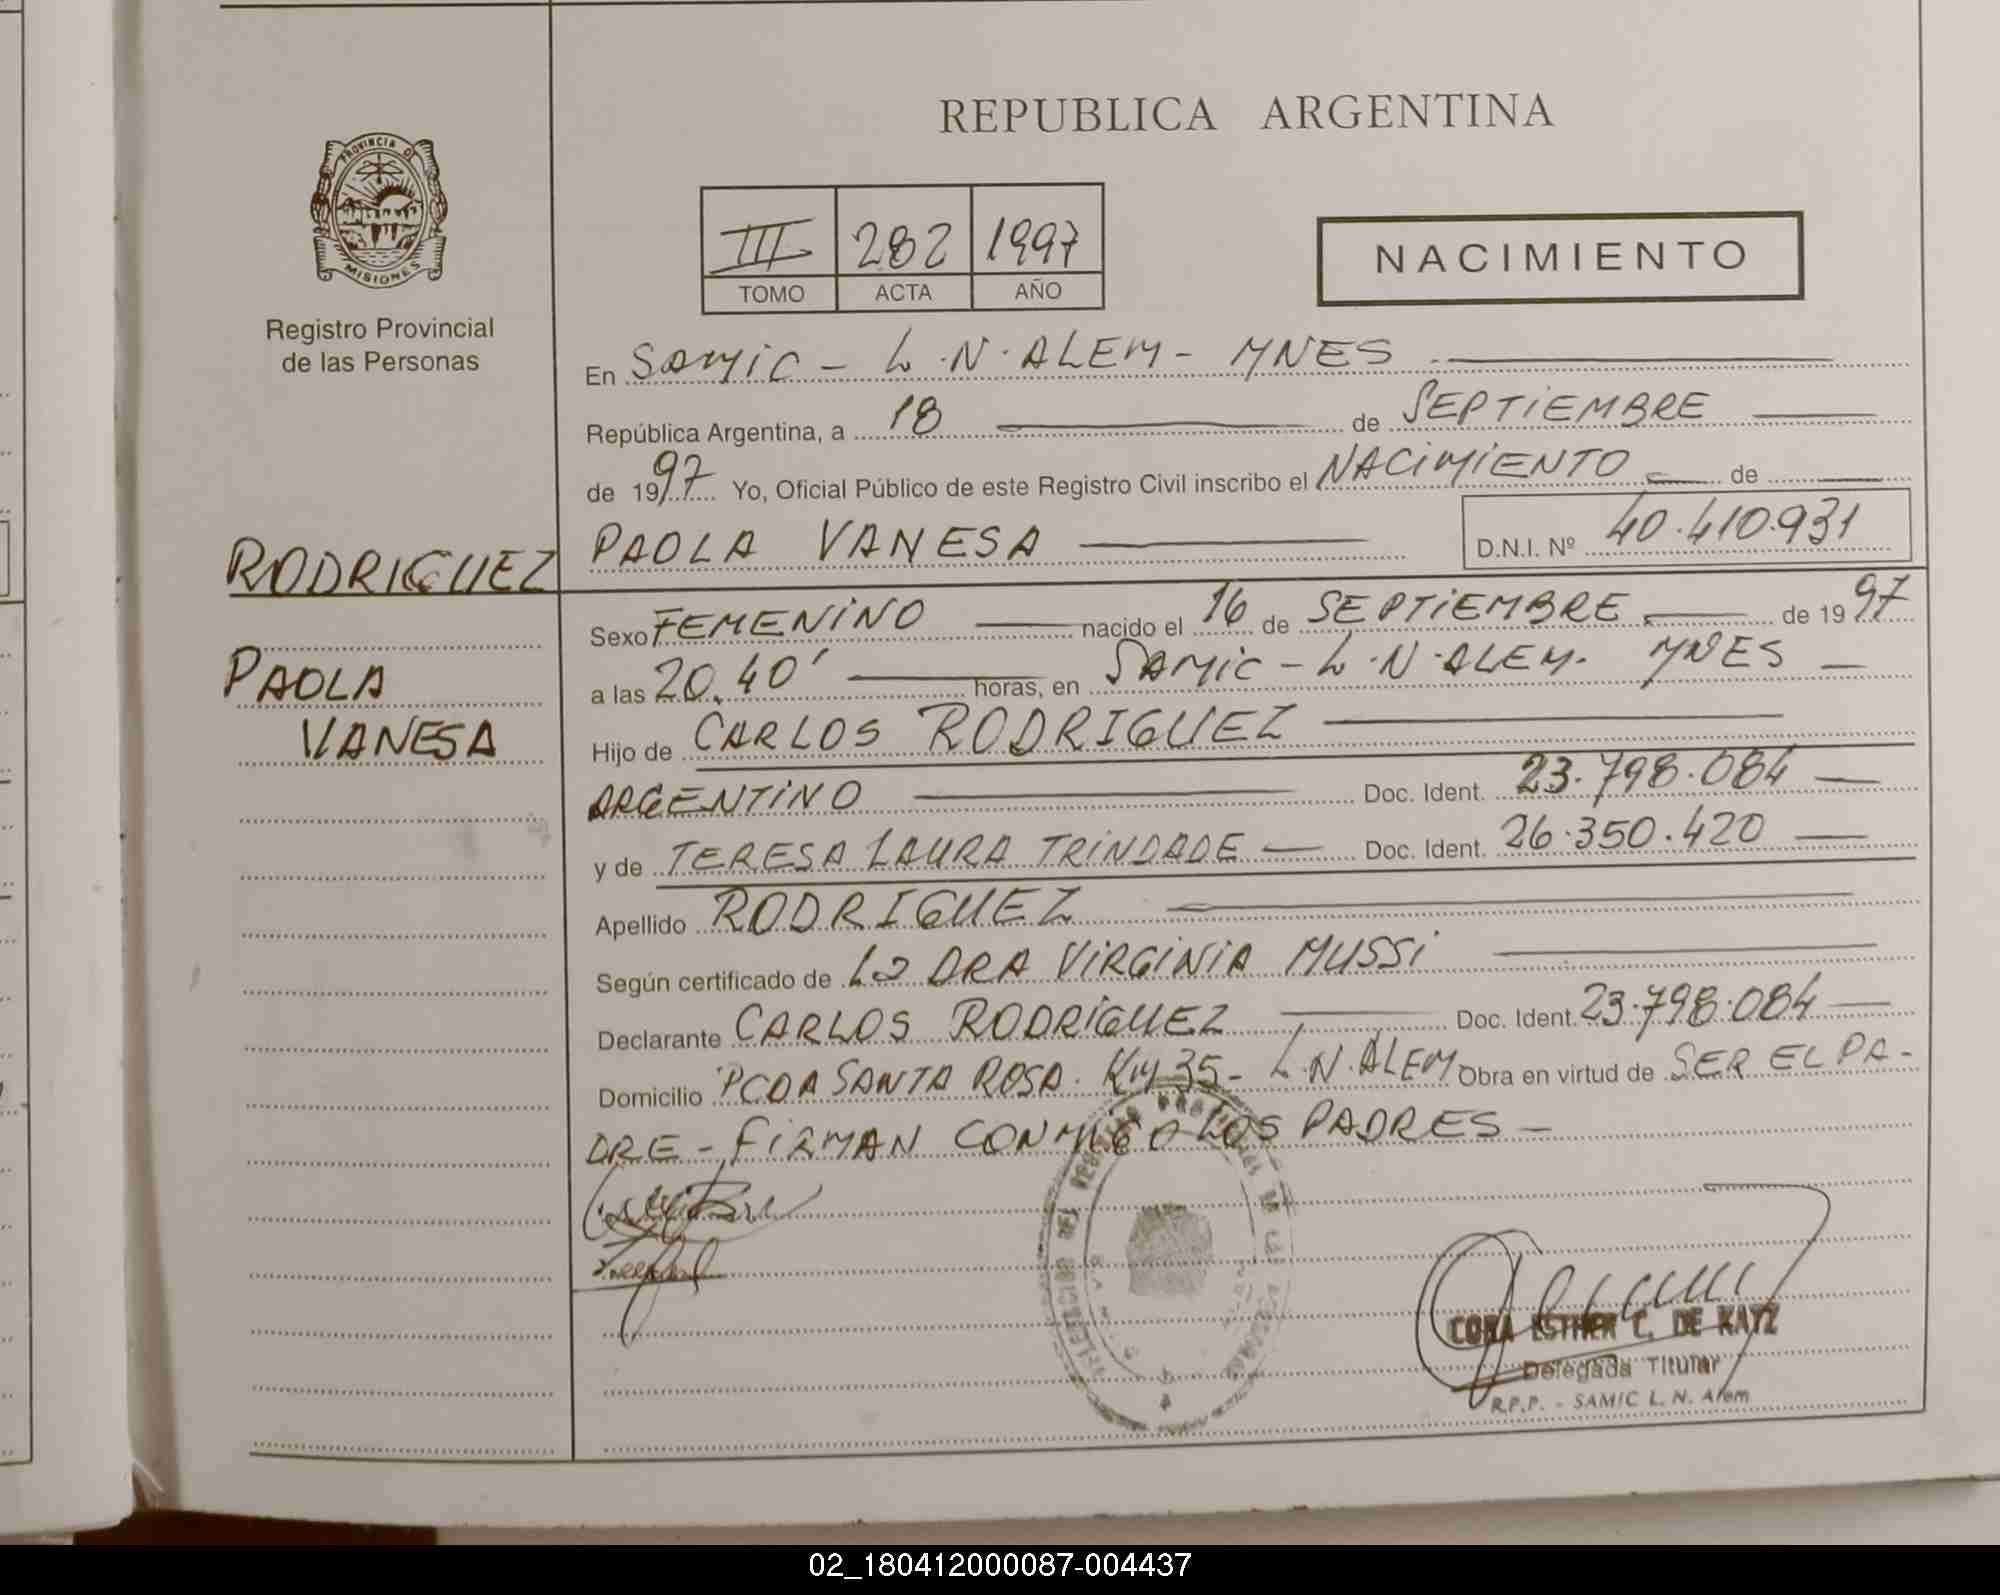 REPUBLICA ARGENTINA
PROVINCIA DE
MISIONES
Registro Provincial
de las Personas
III 282 1997
TOMO ACTA AÑO
NACIMIENTO
En SAMIC - L.N.ALEM - MNES
República Argentina, a 18 de SEPTIEMBRE
de 1997 Yo, Oficial Público de este Registro Civil inscribo el NACIMIENTO de
PAOLA VANESA D.N.I. Nº 40.410.931
RODRIGUEZ
PAOLA
VANESA
Sexo FEMENINO nacido el 16 de SEPTIEMBRE de 1997
a las 20.40' horas, en SAMIC - L.N.ALEM. MNES
Hijo de CARLOS RODRIGUEZ
ARGENTINO Doc. Ident. 23.798.084
y de TERESA LAURA TRINDADE Doc. Ident. 26.350.420
Apellido RODRIGUEZ
Según certificado de La DRA VIRGINIA MUSSI
Declarante CARLOS RODRIGUEZ Doc. Ident. 23.798.084
Domicilio PCDA SANTA ROSA. KM 35 - L.N.ALEM Obra en virtud de SER EL PA-
DRE - FIRMAN CONMIGO LOS PADRES -
CORA ESTHER C. DE KATZ
Delegada Titular
R.P.P. - SAMIC L. N. Alem
02_180412000087-004437